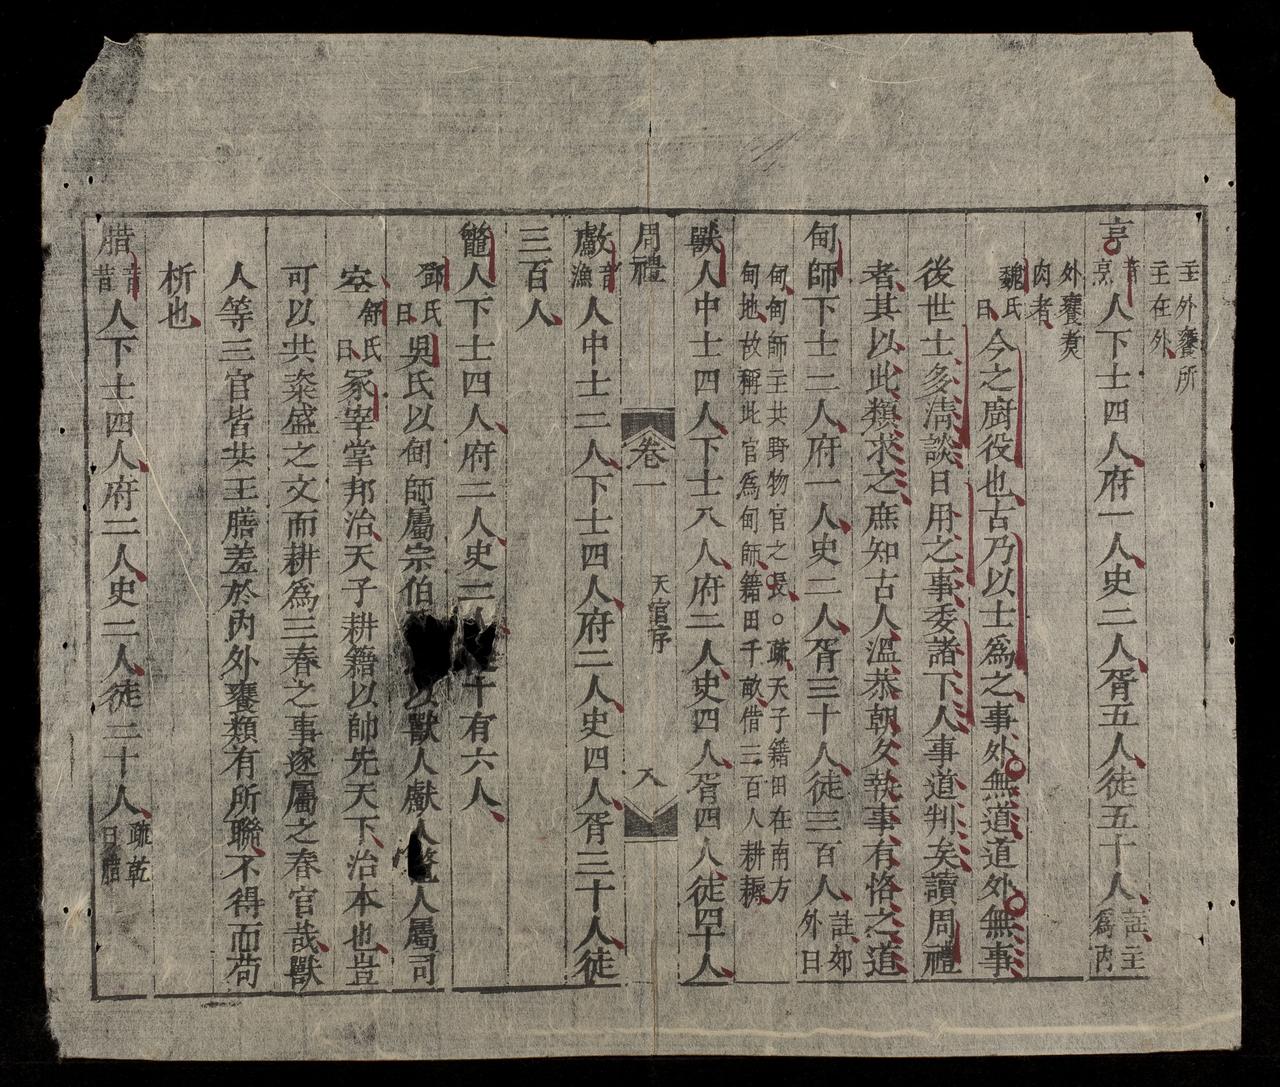 主外饔所
主在外
亨音烹人下士四人府一人史二人胥五人徒五十人註主爲內
外饔煑
肉者
魏氏曰今之廚役也古乃以士爲之事外無道道外無事
後世士多清談日用之事委諸下人事道判矣讀周禮
者其以此類求之庶知古人溫恭朝夕執事有恪之道
甸師下士二人府一人史二人胥三十人徒三百人註郊外曰
甸甸師主共野物官之長○疏天子籍田在南方
甸地故稱此官爲甸師籍田千畝借三百人耕耨
獸人中士四人下士八人府二人史四人胥四人徒四十人
周禮 卷一 天官序 八
音漁人中士二人下士四人府二人史四人胥三十人徒
三百人
鼈人下士四人府二人史二人徒十有六人
鄧氏曰吳氏以甸師屬宗伯以獸人人鼈人屬司
空舒氏曰冢宰掌邦治天子耕籍以帥先天下治本也豈
可以共粢盛之文而耕爲三春之事遂屬之春官哉獸
人等三官皆共王膳羞於內外饔類有所聯不得而苟
析也
腊音昔人下士四人府二人史二人徒二十人疏乾曰腊